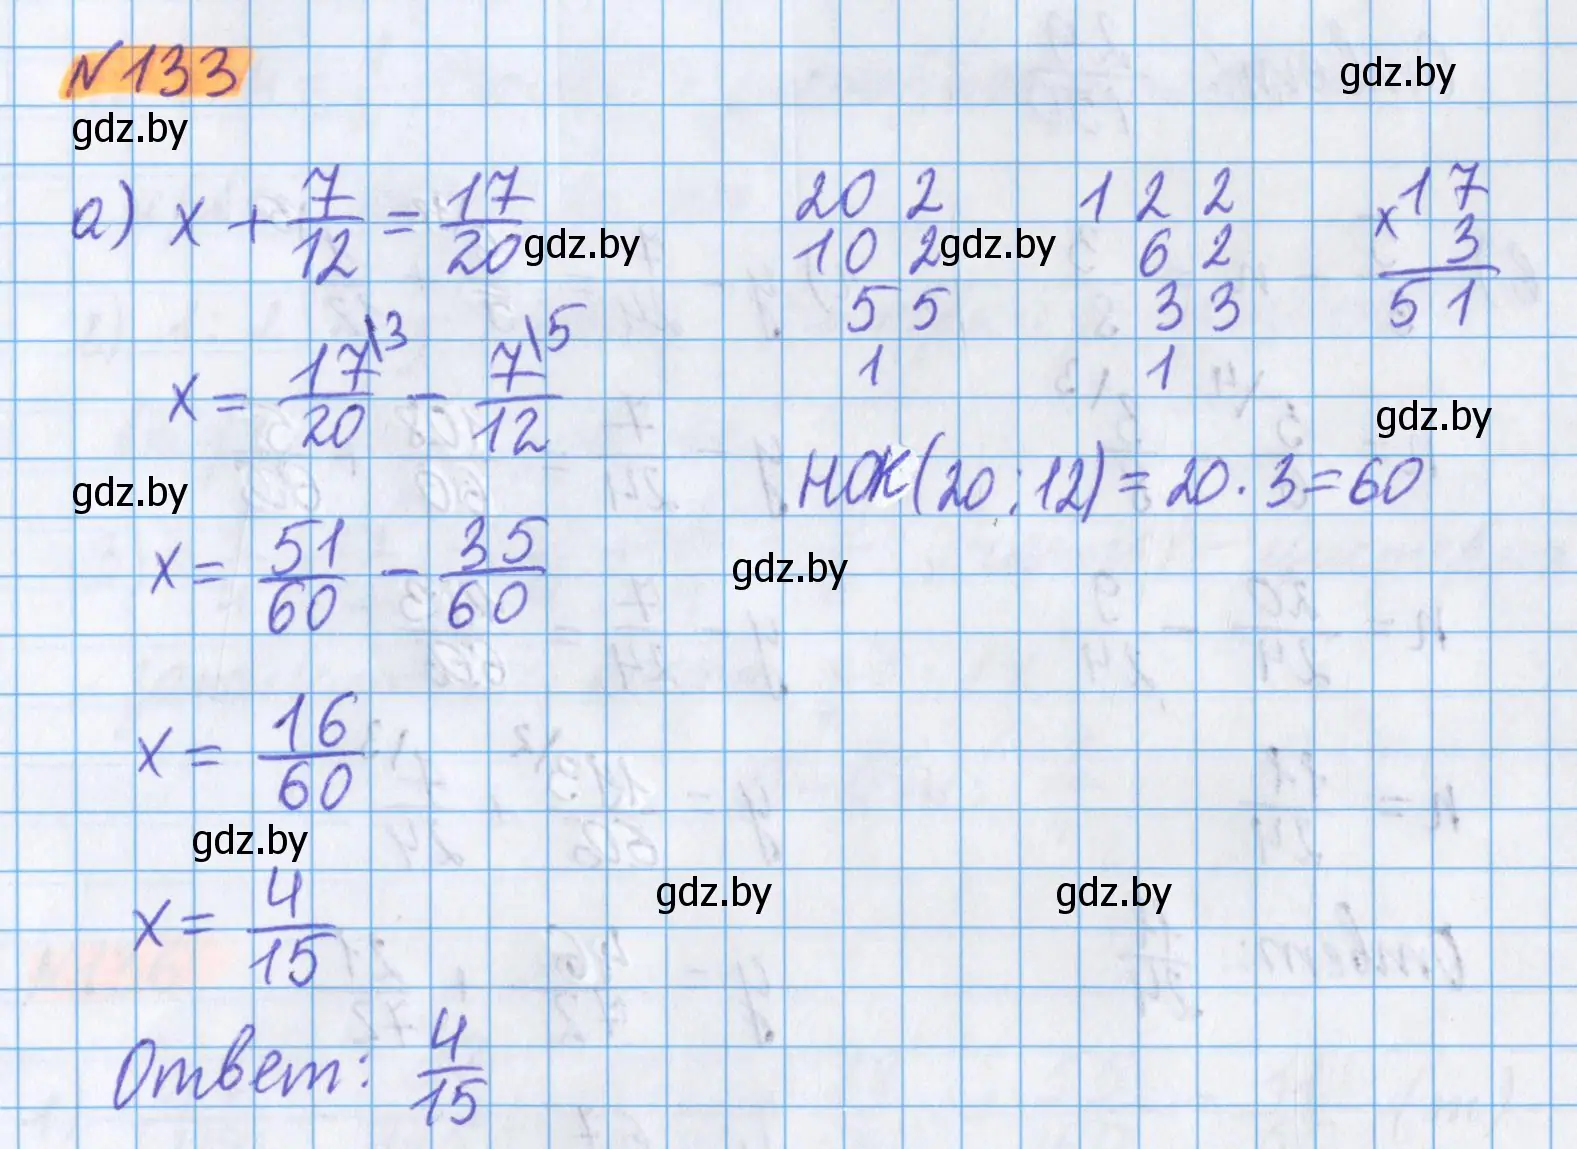 №133
gdz.by
gdz.by
а) x + 7/12 = 17/20
gdz.by
x = 17\3/20 - 7\5/12
gdz.by
x = 51/60 - 35/60
x = 16/60
gdz.by
x = 4/15
Ответ: 4/15
20 2
10 2
5 5
1
gdz.by
12 2
6 2
3 3
1
17
x 3
51
gdz.by
НОК(20;12) = 20·3=60
gdz.by
gdz.by
gdz.by